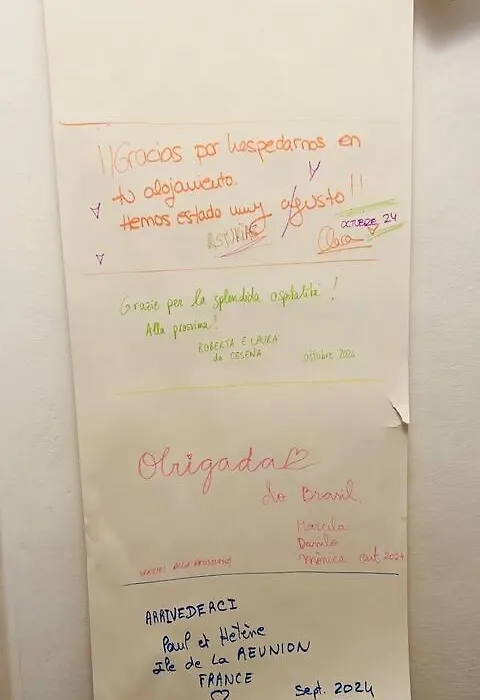 ¡¡Gracias por hospedarnos en
tu alojamiento.
Hemos estado muy agusto!!
ASTURIAS
OCTUBRE, 24
Clara
Grazie per la splendida ospitalità!
Alla prossima!
ROBERTA E LAURA
da CESENA
ottobre 2024
Obrigada
do Brasil
Marcela
Danilo
Mônica Out 2024
ARRIVEDERCI
Paul et Hélène
Ile de La REUNION
FRANCE
Sept. 2024